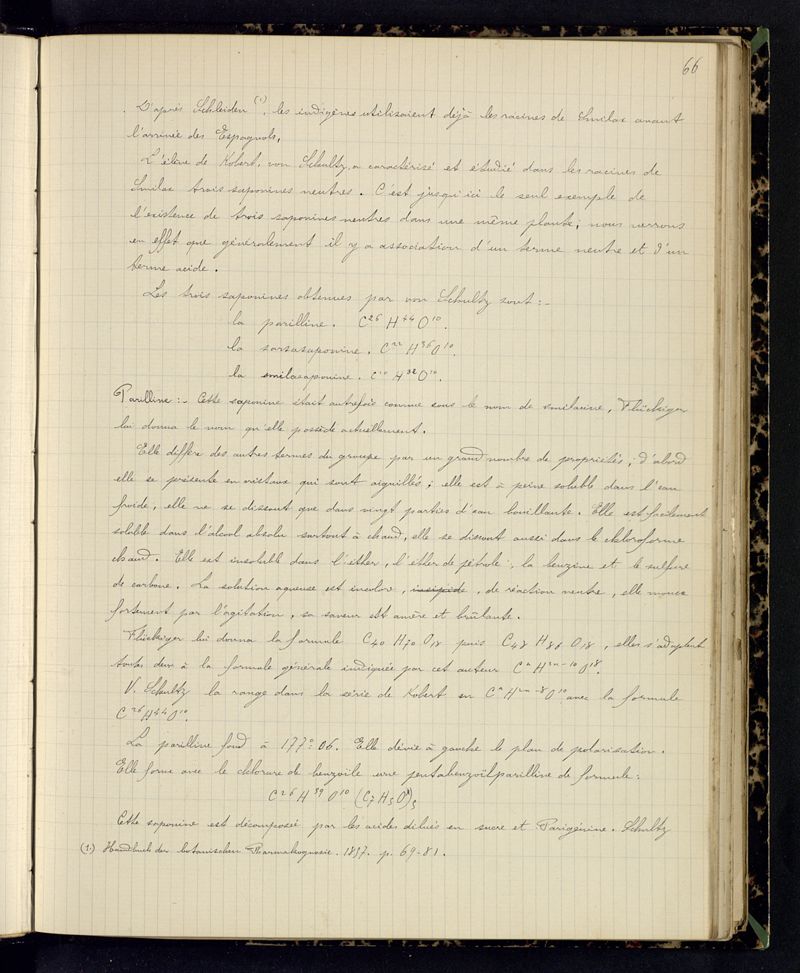 66
D'après Schleiden (1), les indigènes utilisaient déjà les racines de Smilax avant
l'arrivée des Espagnols.
L'élève de Kobert, von Schultz, a caractérisé et étudié dans les racines de
Smilax trois saponines neutres. C'est jusqu'ici le seul exemple de
l'existence de trois saponines neutres dans une même plante; nous verrons
en effet que généralement il y a association d'un terme neutre et d'un
terme acide.
Les trois saponines obtenues par von Schultz sont:-
la parilline. C²⁶ H⁴⁴ O¹⁰.
la sarsasaponine. C²² H³⁶ O¹⁰.
la smilasaponine. C²⁰ H³² O¹⁰.
Parilline:- Cette saponine était autrefois connue sous le nom de smilacine, Flückiger
lui donna le nom qu'elle possède actuellement.
Elle diffère des autres termes du groupe par un grand nombre de propriétés; d'abord
elle se présente en cristaux qui sont aiguillés; elle est à peine soluble dans l'eau
froide, elle ne se dissout que dans vingt parties d'eau bouillante. Elle est facilement
soluble dans l'alcool absolu surtout à chaud, elle se dissout aussi dans le chloroforme
chaud. Elle est insoluble dans l'éther, l'éther de pétrole, la benzine et le sulfure
de carbone. La solution aqueuse est incolore, insipide, de réaction neutre, elle mousse
fortement par l'agitation, sa saveur est amère et brûlante.
Flückiger lui donna la formule C₄₀ H₇₀ O₁₈ puis C₄₈ H₈₆ O₁₈, elles s'adaptent
toutes deux à la formule générale indiquée par cet auteur Cⁿ H²ⁿ⁻¹⁰ O¹⁸.
V. Schultz la range dans la série de Kobert en Cⁿ H²ⁿ⁻⁸ O¹⁰ avec la formule
C²⁶ H⁴⁴ O¹⁰.
La parilline fond à 177°06. Elle dévie à gauche le plan de polarisation.
Elle forme avec le chlorure de benzoïle une pentabenzoïlparilline de formule:
C²⁶ H³⁹ O¹⁰ (C₇ H₅ O)₅
Cette saponine est décomposée par les acides dilués en sucre et Parigénine. Schultz
(1.) Handbuch der botanischen Pharmakognosie. 1857. p. 69-81.